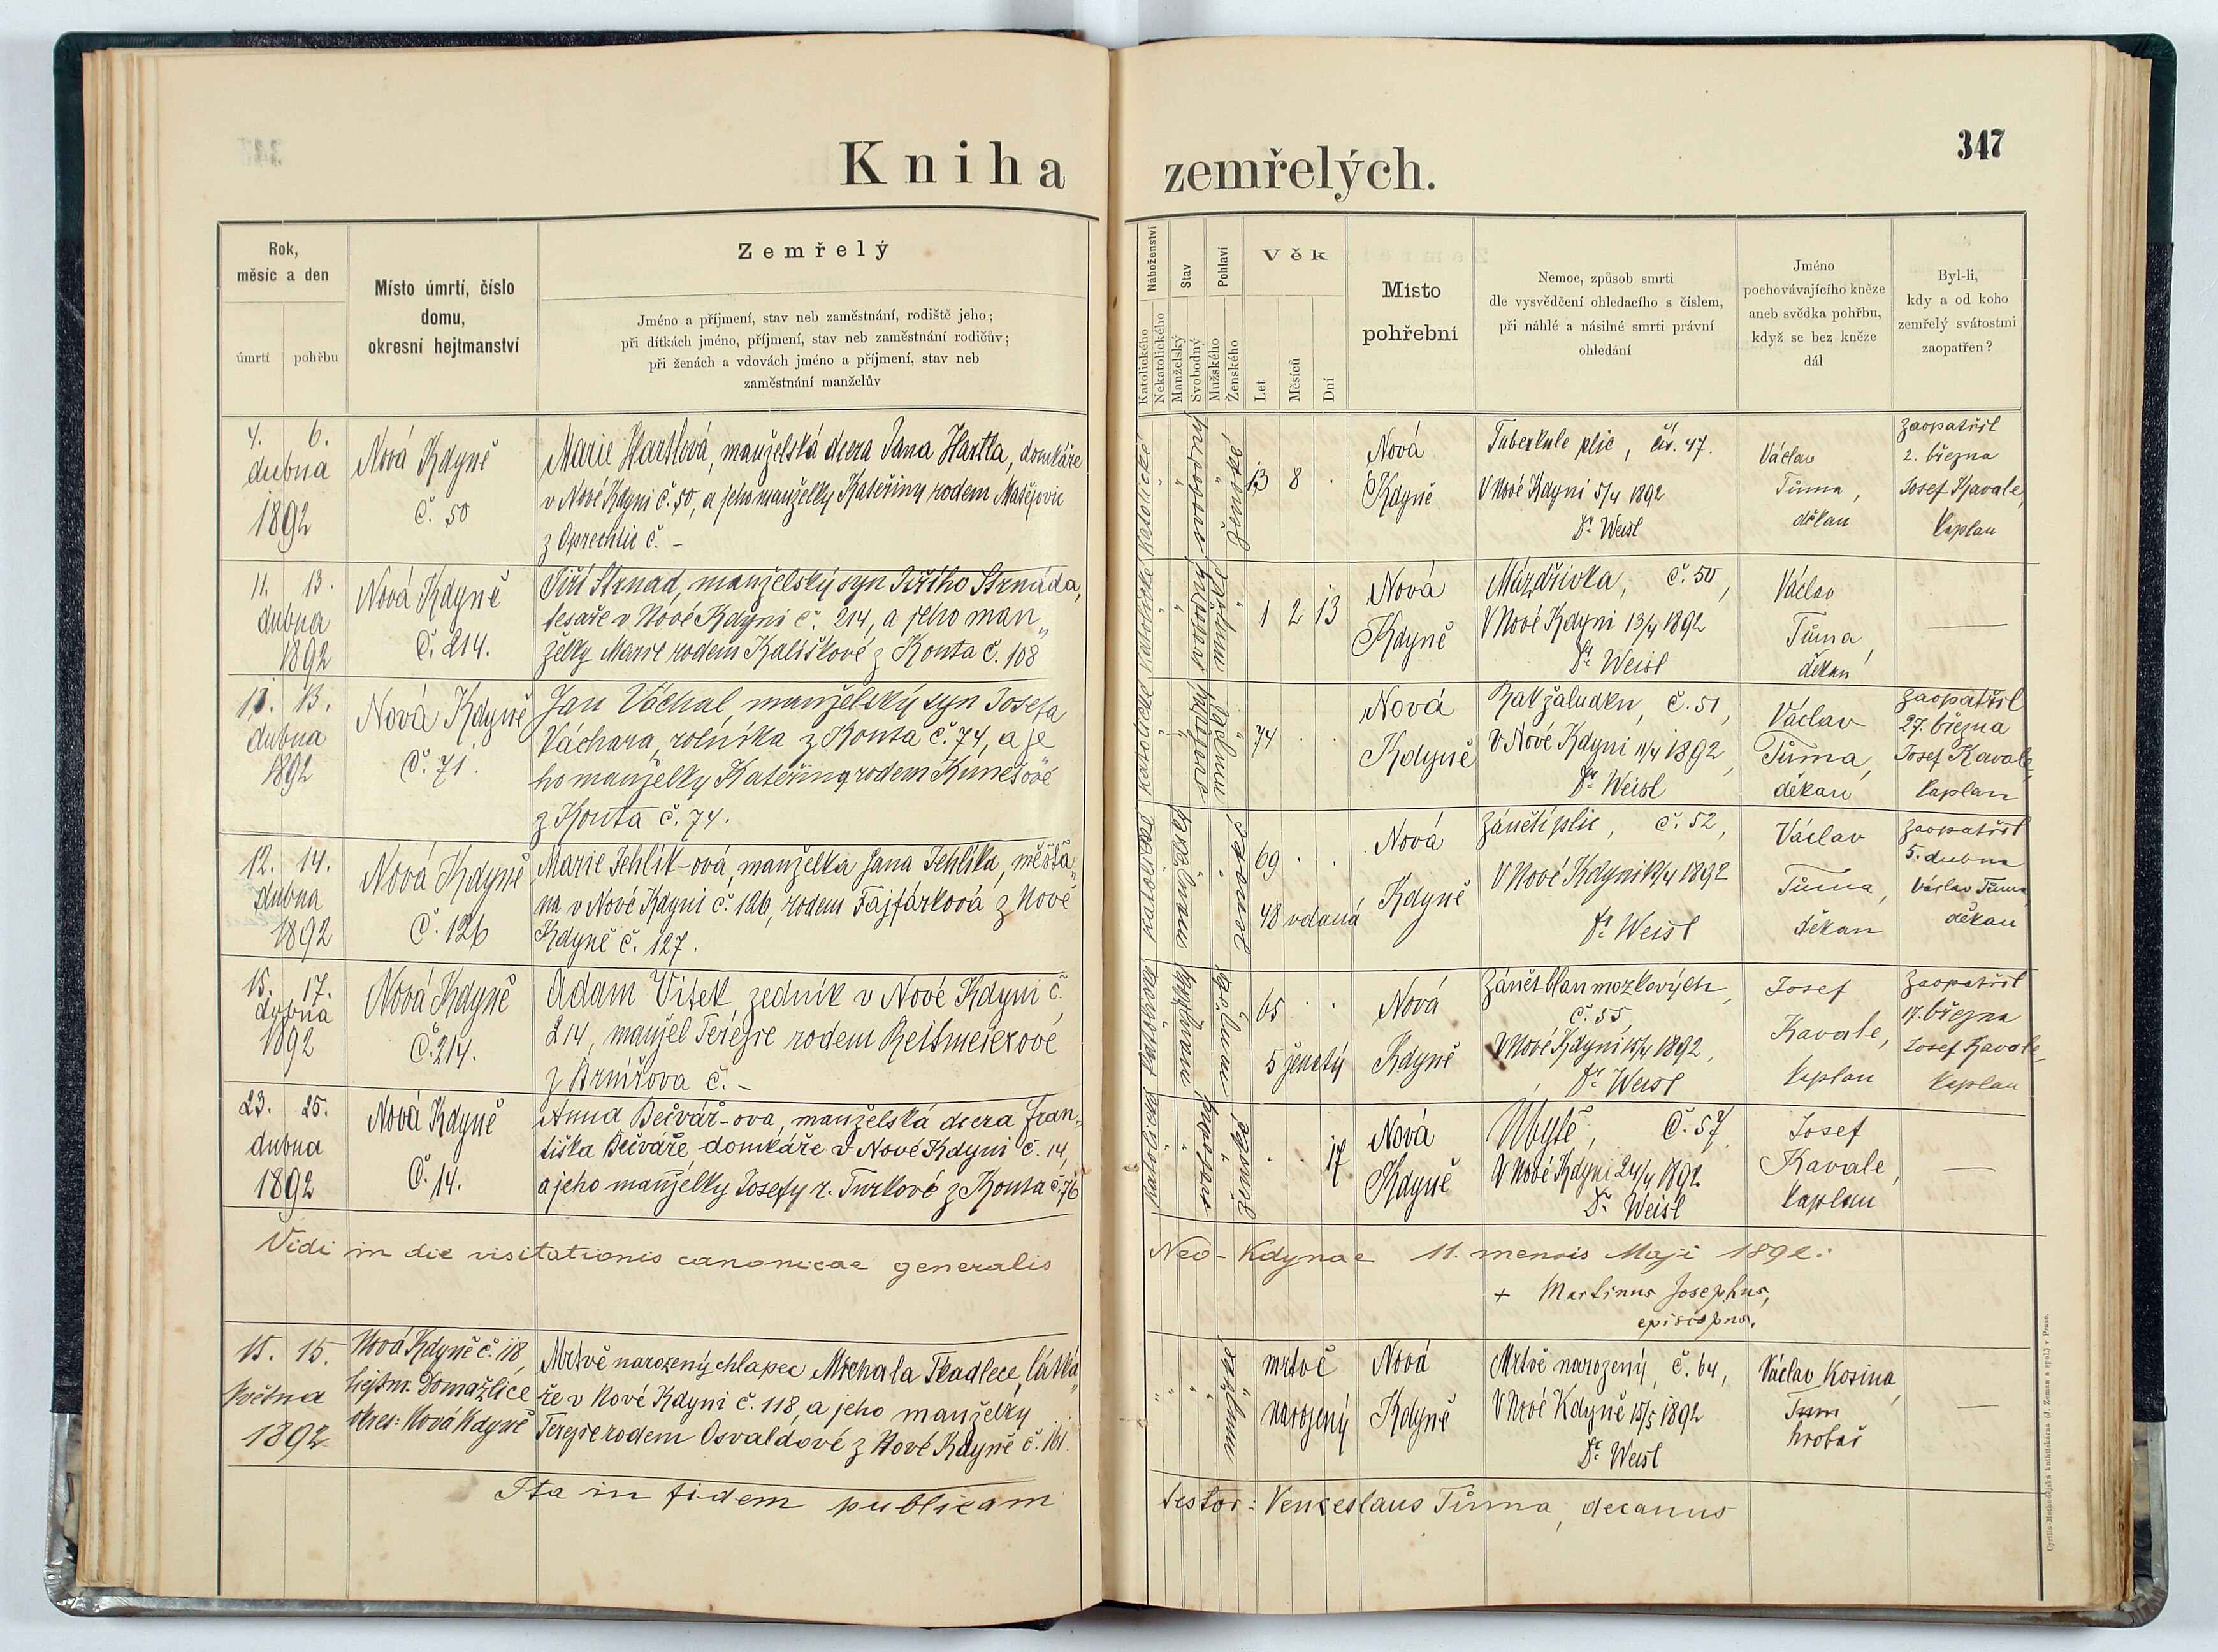 347
Kniha zemřelých.
Rok,
měsíc a den
úmrtí
pohřbu
Místo úmrtí, číslo
domu,
okresní hejtmanství
Zemřelý
Jméno a příjmení, stav neb zaměstnání, rodiště jeho;
při dítkách jméno, příjmení, stav neb zaměstnání rodičův;
při ženách a vdovách jméno a příjmení, stav neb
zaměstnání manželův
Náboženství
Katolického
Nekatolického
Stav
Manželský
Svobodný
Pohlaví
Mužského
Ženského
Věk
Let
Měsíců
Dní
Místo
pohřební
Nemoc, způsob smrti
dle vysvědčení ohledacího s číslem,
při náhlé a násilné smrti právní
ohledání
Jméno
pochovávajícího kněze
aneb svědka pohřbu,
když se bez kněze
dál
Byl-li,
kdy a od koho
zemřelý svátostmi
zaopatřen?
4. 6.
dubna
1892
Nová Kdyně
č. 50
Marie Hartlová, manželská dcera Jana Hartla, domkáře
v Nové Kdyni č. 50, a jeho manželky Kateřiny rodem Matějovic
z Oprechtic č. –
katolické
svobodný
ženské
13 8 .
Nová
Kdyně
Tuberkule plic, čís. 47.
V Nové Kdyni 5/4 1892
Dr. Weisl
Václav
Tůma,
děkan
zaopatřil
2. března
Josef Kavale,
kaplan
11. 13.
dubna
1892
Nová Kdyně
Č. 214.
Jiří Strnad, manželský syn Jiřího Strnada,
tesaře v Nové Kdyni č. 214, a jeho man„
želky Marie rodem Kališkové z Kouta č. 108
katolické
svobodný
mužské
1 2 13
Nová
Kdyně
Mázdřivka, č. 50,
V Nové Kdyni 13/4 1892
Dr. Weisl
Václav
Tůma,
děkan
—
11. 13.
dubna
1892
Nová Kdyně
Č. 71.
Jan Váchal, manželský syn Josefa
Váchara, rolníka z Kouta č. 74, a je
ho manželky Kateřiny rodem Kunešové
z Kouta č. 74.
katolické
svobodný
mužské
74 . .
Nová
Kdyně
Rak žaludku, č. 51,
V Nové Kdyni 11/4 1892,
Dr. Weisl
Václav
Tůma,
děkan
zaopatřil
27. března
Josef Kavale,
kaplan
12. 14.
dubna
1892
Nová Kdyně
Č. 126
Marie Jehlík-ová, manželka Jana Jehlíka, měšťa„
na v Nové Kdyni č. 126, rodem Fajfárková z Nové
Kdyně č. 127.
katolické
manželský
ženské
69 . .
48 vdaná
Nová
Kdyně
Zánět plic, č. 52,
V Nové Kdyni 12/4 1892
Dr. Weisl
Václav
Tůma,
děkan
zaopatřil
5. dubna
Václav Tůma,
děkan
15. 17.
dubna
1892
Nová Kdyně
Č. 214.
Adam Vítek, zedník v Nové Kdyni č.
214, manžel Terezie rodem Reitmeierové
z Brnířova č. –
katolické
manželský
mužské
65 . .
5 ženatý
Nová
Kdyně
Zánět blan mozkových,
č. 55,
V Nové Kdyni, 15/4 1892,
Dr. Weisl
Josef
Kavale,
kaplan
zaopatřil
17. března
Josef Kavale,
kaplan
23. 25.
dubna
1892
Nová Kdyně
Č. 14.
Anna Bečvář-ova, manželská dcera Fran„
tiška Bečváře, domkáře v Nové Kdyni č. 14,
a jeho manželky Josefy r. Turkové z Kouta č. 76
katolické
svobodný
ženské
. . 17
Nová
Kdyně
Úbytě, Č. 57
V Nové Kdyni 24/4 1892
Dr. Weisl
Josef
Kavale,
kaplan
—
Vidi in die visitationis canonicae generalis Neo-Kdynae 11. mensis Maji 1892.
+ Martinus Josephus,
episcopus.
15. 15.
května
1892
Nová Kdyně č. 118,
hejtm. Domažlice
okres: Nová Kdyně
Mrtvě narozený chlapec Michala Tkadlece, látká„
ře v Nové Kdyni č. 118, a jeho manželky
Terezie rodem Osvaldové z Nové Kdyně č. 161.
mužské
mrtvě
narozený
Nová
Kdyně
Mrtvě narozený, č. 64,
V Nové Kdyně 15/5 1892
Dr. Weisl
Václav Kosina,
hrobař
—
Ita in fidem publicam testor: Venceslaus Tůma, decanus
Cyrillo-Methodějská knihtiskárna (J. Zeman a spol.) v Praze.